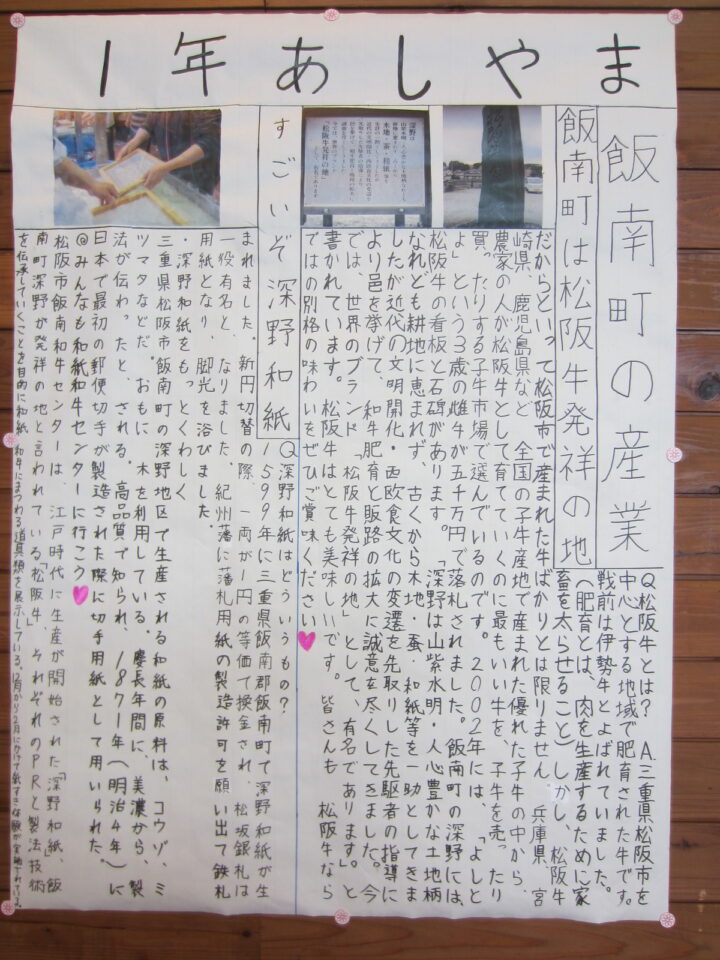 1年あしやま
飯南町の産業
飯南町は松阪牛発祥の地
Q松阪牛とは? A.三重県松阪市を
中心とする地域で肥育された牛です。
戦前は伊勢牛とよばれていました。
(肥育とは、肉を生産するために家
畜を太らせること)しかし、松阪牛
だからといって松阪市で産まれた牛ばかりとは限りません。兵庫県、宮
崎県、鹿児島県など、全国の子牛産地で産まれた優れた子牛の中から、
農家の人が松阪牛として育てていくのに最もいい牛を、子牛を売ったり
買ったりする子牛市場で選んでいるのです。2002年には、「よしと
よ」という3歳の雌牛が五千万円で落札されました。飯南町の深野には、
松阪牛の看板と石碑があります。「深野は山紫水明・人心豊かな土地柄
なれども耕地に恵まれず、古くから木地・蚕・和紙等を一助としてきま
したが近代の文明開化・西欧食文化の変遷を先取りした先駆者の指導に
より邑を挙げて、和牛肥育と販路の拡大に誠意を尽くしてきました。今
では、世界のブランド「松阪牛発祥の地」として、有名であります」と
書かれています。松阪牛はとても美味しいです。皆さんも 松阪牛なら
ではの別格の味わいをぜひご賞味ください
深野は
木地・蚕・和紙等
「松阪牛発祥の地」
すごいぞ深野和紙
Q深野和紙はどういうもの?
1599年に三重県飯南郡飯南町で深野和紙が生
まれました。新円切替の際、一両が一円の等価で換金され、松坂銀札は
一役有名と、なりました。紀州藩に藩札用紙の製造許可を願い出て鉄札
用紙となり、脚光を浴びました。
・深野和紙をもっとくわしく
三重県松阪市飯南町の深野地区で生産される和紙の原料は、コウゾ、ミ
ツマタなどだ。おもに、木を利用している。慶長年間に、美濃から、製
法が伝わったと、される。高品質で知られ、1871年(明治4年)に
日本で最初の郵便切手が製造された際に切手用紙として用いられた。
@みんなも和紙和牛センターに行こう
松阪市飯南和牛センターは、江戸時代に生産が開始された「深野和紙」、飯
南町深野が発祥の地と言われている「松阪牛」、それぞれのPRと製法技術
を伝承していくことを目的に和紙、和牛にまつわる道具類を展示している。12月から2月にかけて紙すき体験が実施されている。